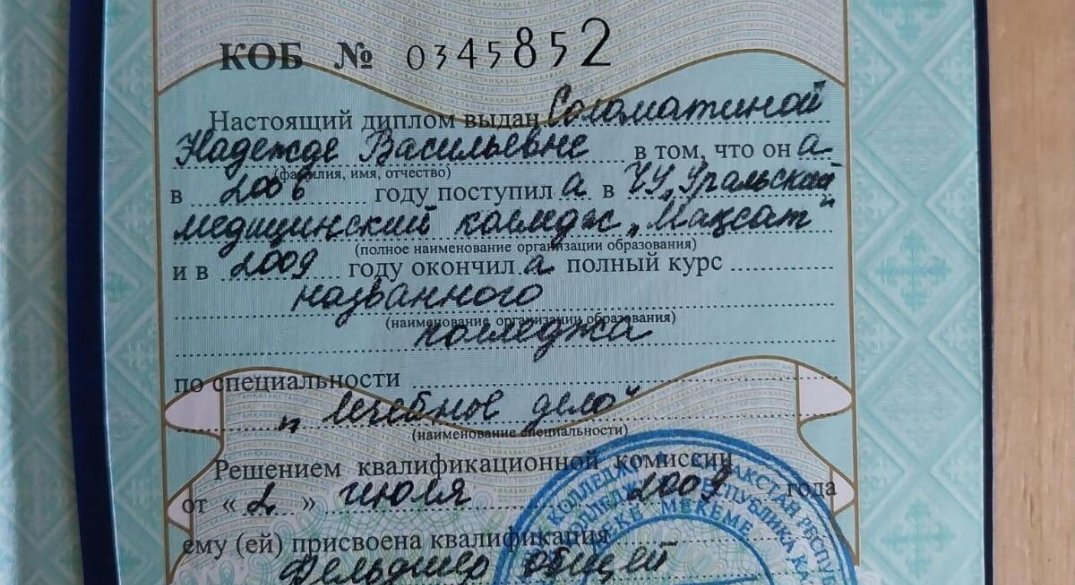 КОБ № 0345852
Настоящий диплом выдан Соломатиной
Надежде Васильевне в том, что он а
(фамилия, имя, отчество)
в 2006 году поступил а в ЧУ „Уральский
медицинский колледж „Мақсат"
(полное наименование организации образования)
и в 2009 году окончил а полный курс
названного
(наименование организации образования)
колледжа
по специальности
„Лечебное дело"
(наименование специальности)
Решением квалификационной комиссии
от « 2 » июля 2009 года
ему (ей) присвоена квалификация
Фельдшер общей
МЕКЕМЕ